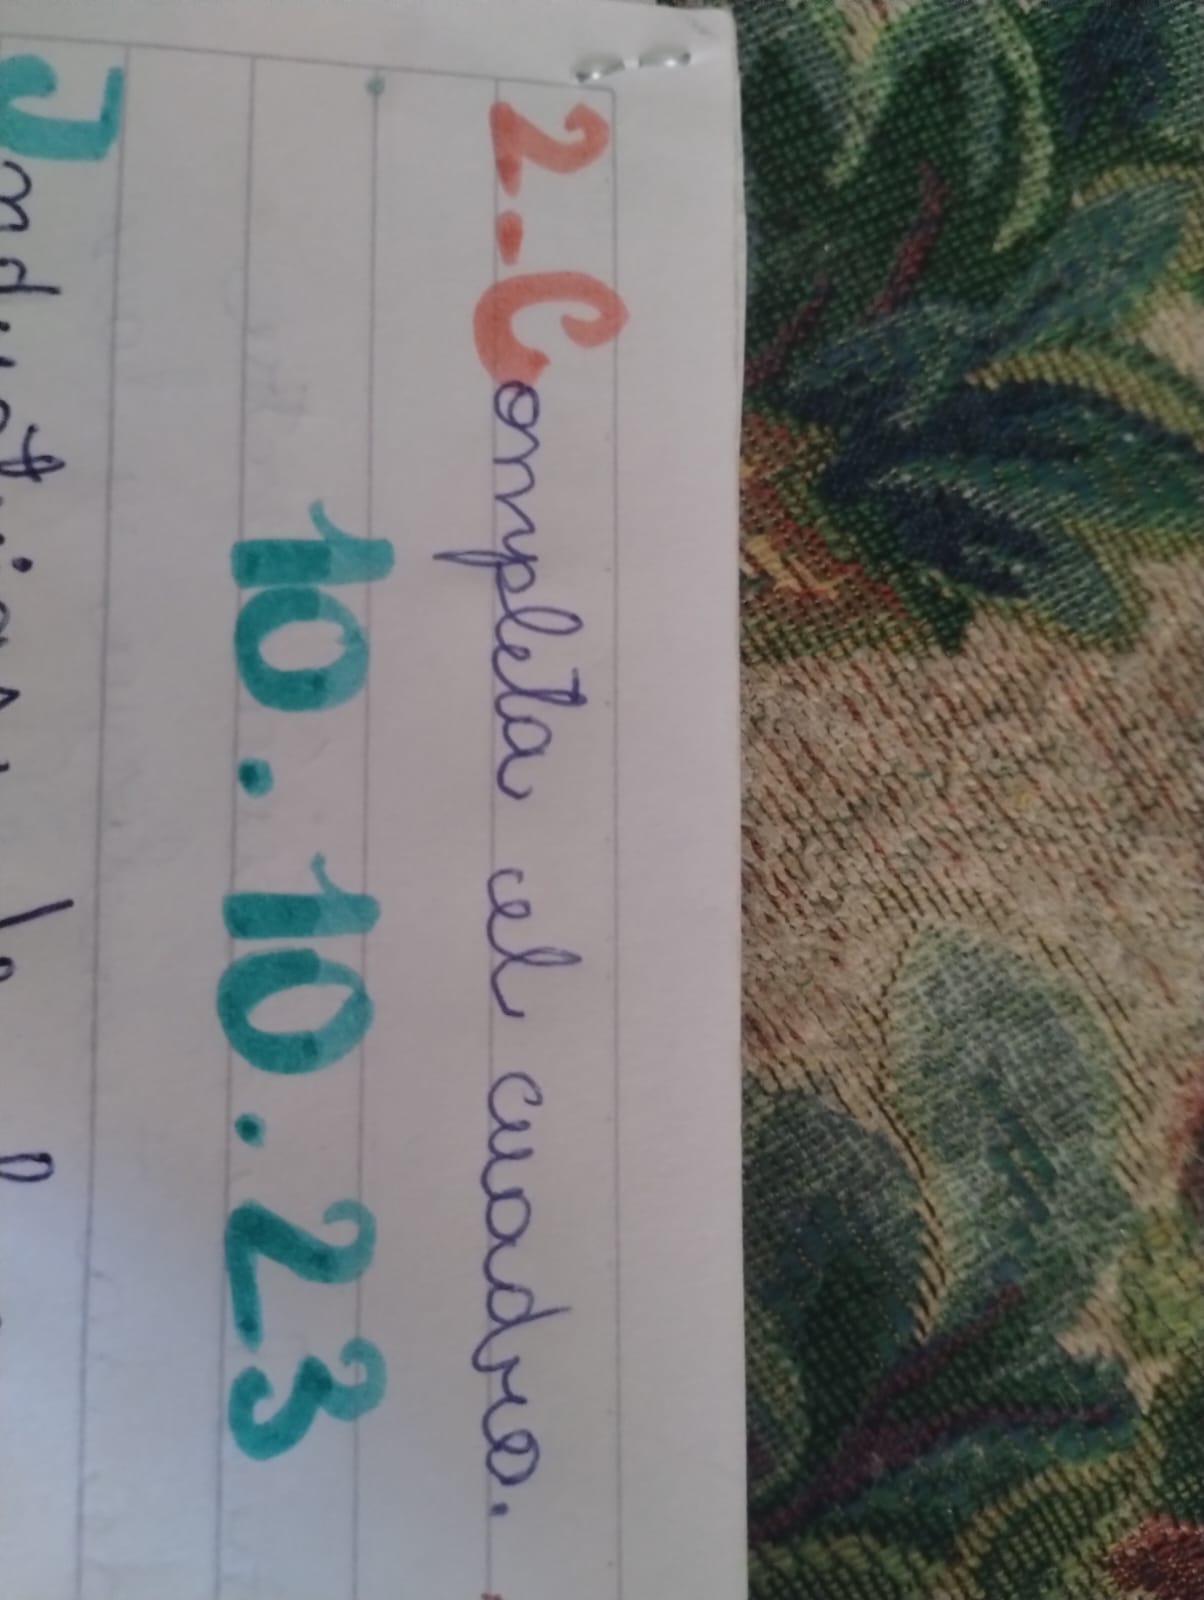 2-Completa el cuadro.
10.10.23